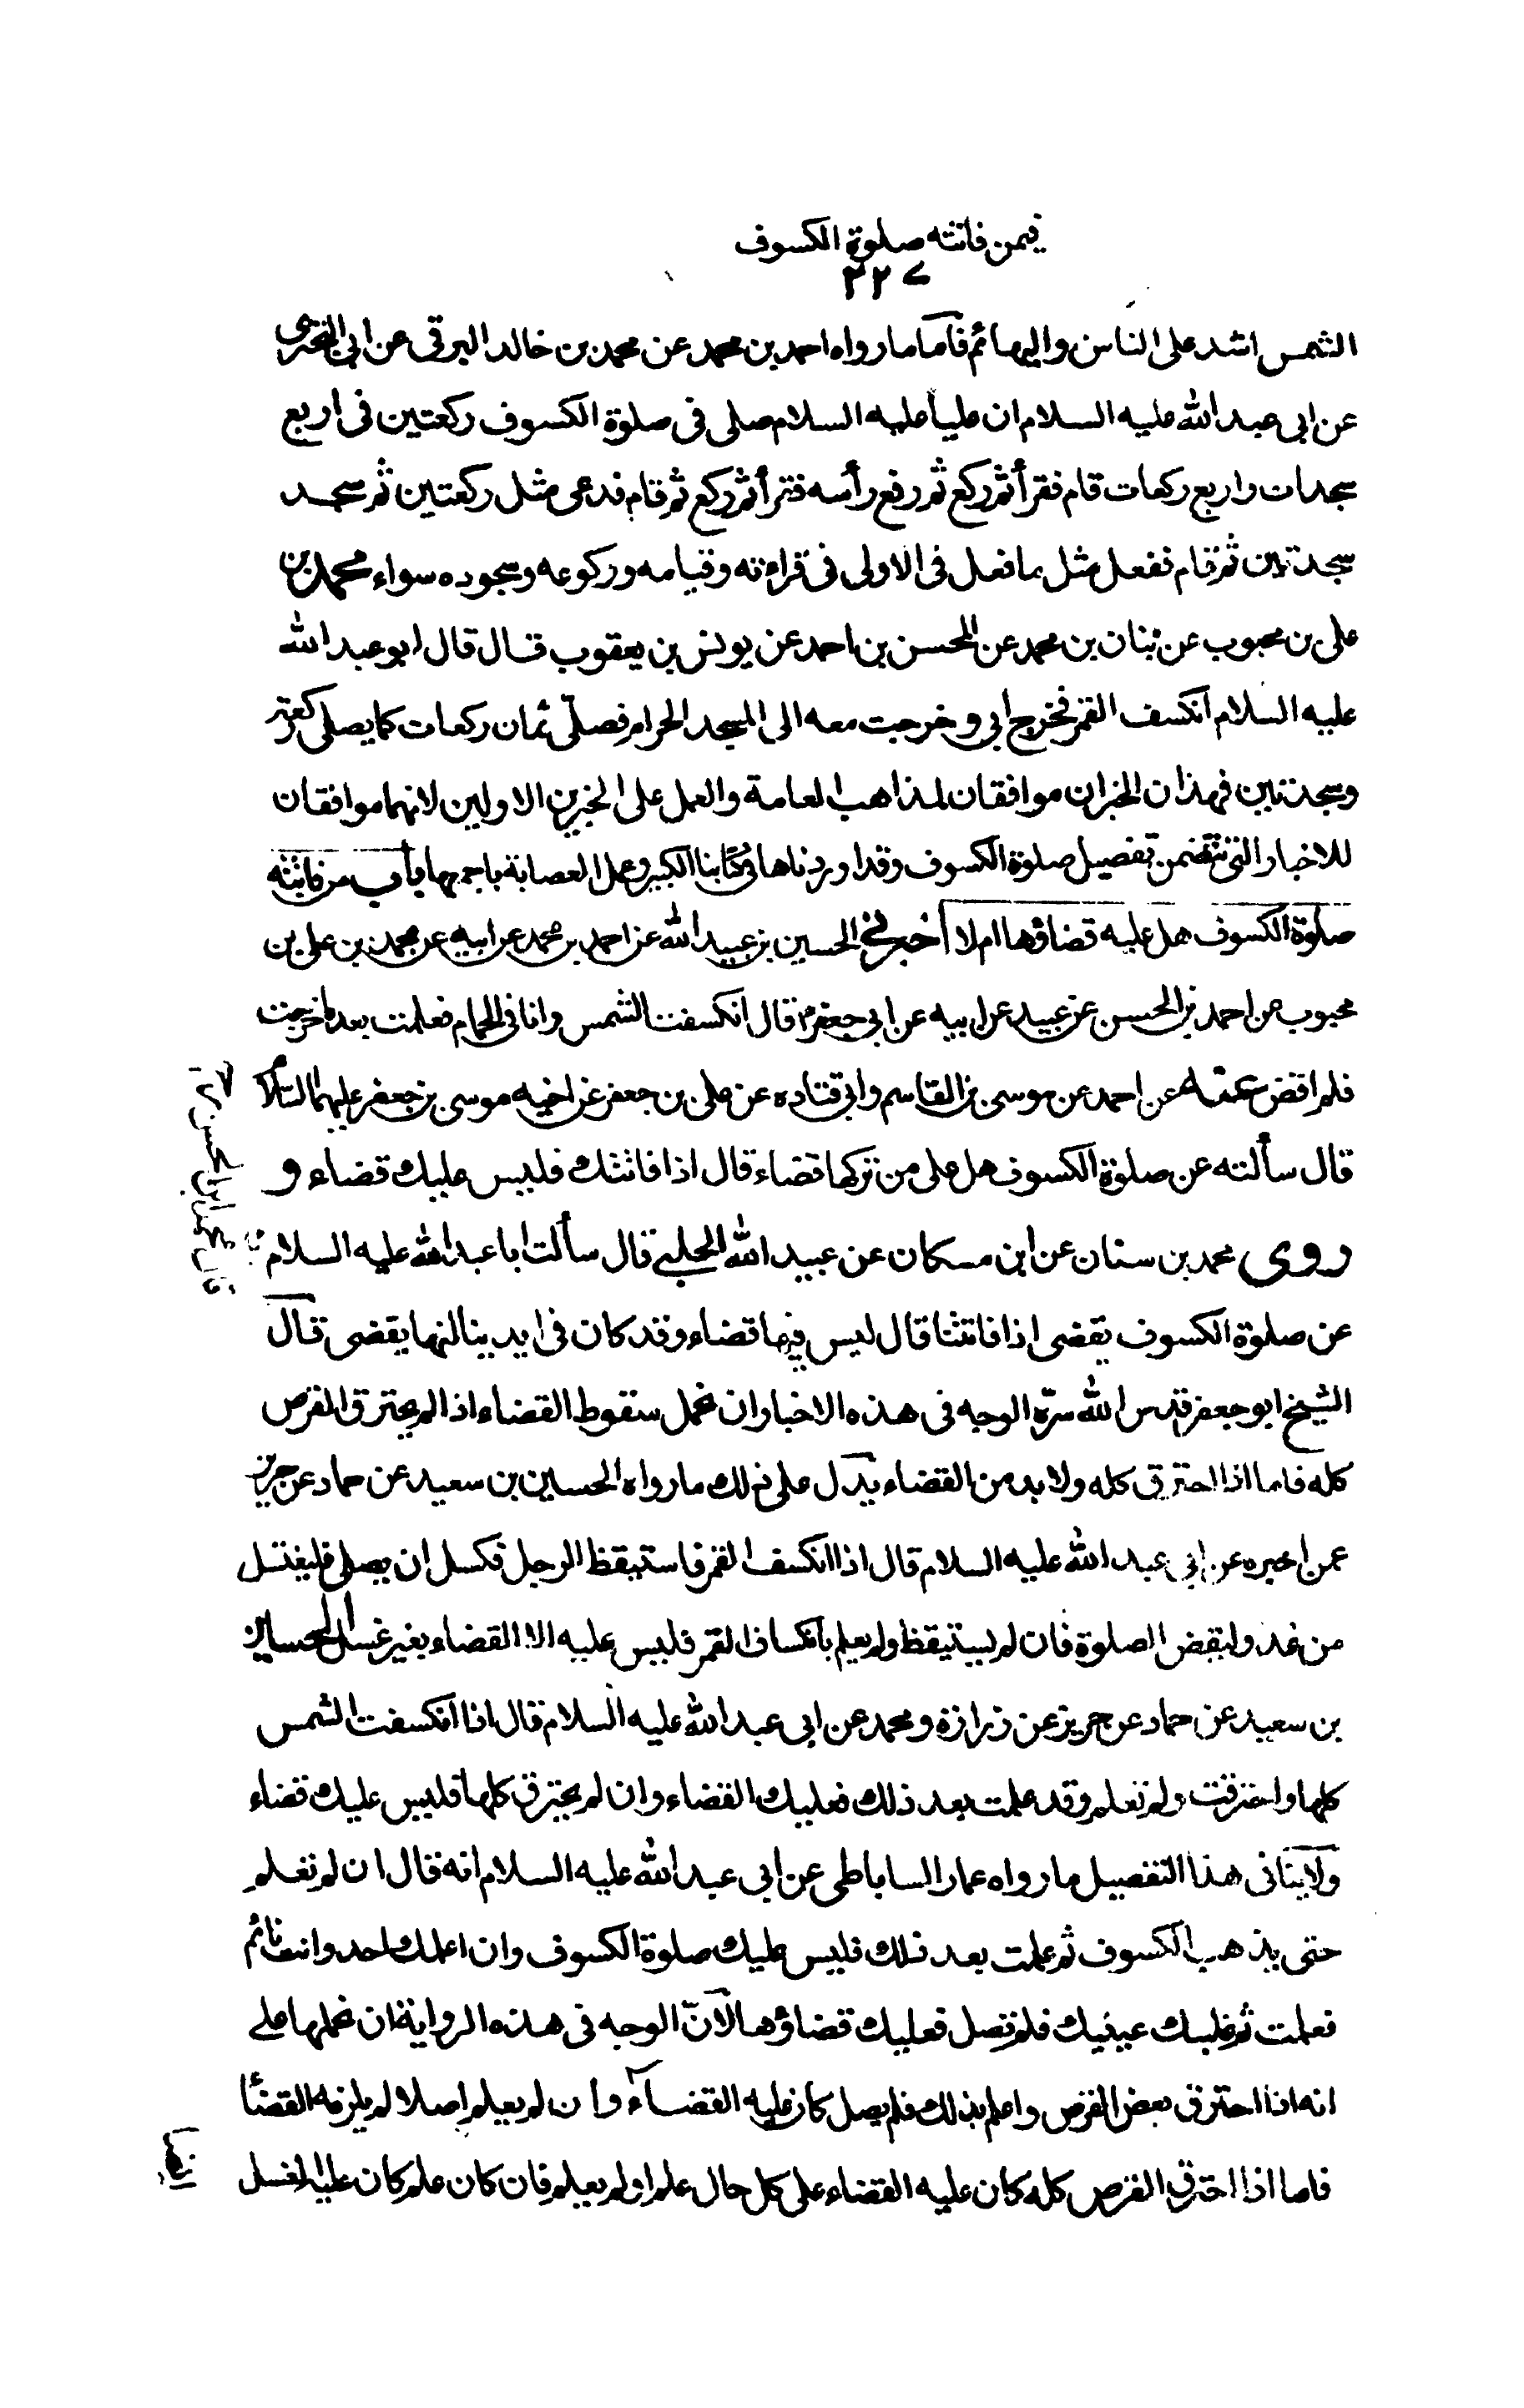 فيمن فاتته صلوة الكسوف
٢٢٧
الشمس اشد على الناس والبهائم فاما ما رواه احمد بن محمد عن محمد بن خالد البرقى عن ابى البخترى
عن ابى عبد الله عليه السلام ان علياً عليه السلام صلى فى صلوة الكسوف ركعتين فى اربع
سجدات واربع ركعات قام فقرأ ثم ركع ثم رفع رأسه فقرأ ثم ركع ثم قام فدعى مثل ركعتين ثم سجد
سجدتين ثم قام ففعل مثل ما فعل فى الاولى فى قراءته وقيامه وركوعه وسجوده سواء محمد بن
على بن محبوب عن بنان بن محمد عن المحسن بن احمد عن يونس بن يعقوب قال قال ابو عبد الله
عليه السلام انكسف القمر فخرج ابى وخرجت معه الى المسجد الحرام فصلّى ثمان ركعات كما يصلى ركعة
وسجدتين فهذان الخبران موافقان لمذاهب العامة والعمل على الخبرين الاولين لانهما موافقان
للاخبار التى تتضمن تفصيل صلوة الكسوف وقد اوردناها فى كتابنا الكبير وعمل العصابة باجمعها باب من فاتته
صلوة الكسوف هل عليه قضاؤها ام لا اخبرنى الحسين بن عبيد الله عن احمد بن محمد عن ابيه عن محمد بن على بن
محبوب عن احمد بن الحسن عن عبيد عن ابيه عن ابى جعفر قال انكسفت الشمس وانا فى الحمام فعلمت بعد ما خرجت
فلم اقض عنه عن احمد عن موسى بن القاسم وابى قتاده عن على بن جعفر عن اخيه موسى بن جعفر عليهما السلام
قال سألته عن صلوة الكسوف هل على من تركها قضاء قال اذا فاتتك فليس عليك قضاء و
روى محمد بن سنان عن ابن مسكان عن عبيد الله الحلبى قال سألت ابا عبد الله عليه السلام
عن صلوة الكسوف يقضى اذا فاتتنا قال ليس فيها قضاء وقد كان فى ايدينا انها يقضى قال
الشيخ ابو جعفر قدس الله سرّه الوجه فى هذه الاخبار ان نحمل سقوط القضاء اذا لم يحترق القرص
كله فاما اذا احترق كله ولا بد من القضاء يدل على ذلك ما رواه الحسين بن سعيد عن حماد عن حريز
عمن اخبره عن ابى عبد الله عليه السلام قال اذا انكسف القمر فاستيقظ الرجل فكسل ان يصلى فليغتسل
من غد وليقض الصلوة فان لم يستيقظ ولم يعلم بانكساف القمر فليس عليه الا القضاء بغير غسل الحسين
بن سعيد عن حماد عن حريز عن زرارة ومحمد عن ابى عبد الله عليه السلام قال اذا انكسفت الشمس
كلها واحترقت ولم تعلم وقد علمت بعد ذلك فعليك القضاء وان لم يحترق كلها فليس عليك قضاء
ولا ينافى هذا التفصيل ما رواه عمار الساباطى عن ابى عبد الله عليه السلام انه قال ان لم تعلم
حتى يذهب الكسوف ثم علمت بعد ذلك فليس عليك صلوة الكسوف وان اعلمك احد وانت نائم
فعلمت ثم غلبتك عينيك فلم تصل فعليك قضاؤها لانّ الوجه فى هذه الرواية ان نحملها على
انه اذا احترق بعض القرص واعلم بذلك فلم يصل كان عليه القضاء وان لم يعلم اصلا لم يلزمه القضاء
فاما اذا احترق القرص كله كان عليه القضاء على كل حال علم او لم يعلم فان كان علم كان عليه الغسل